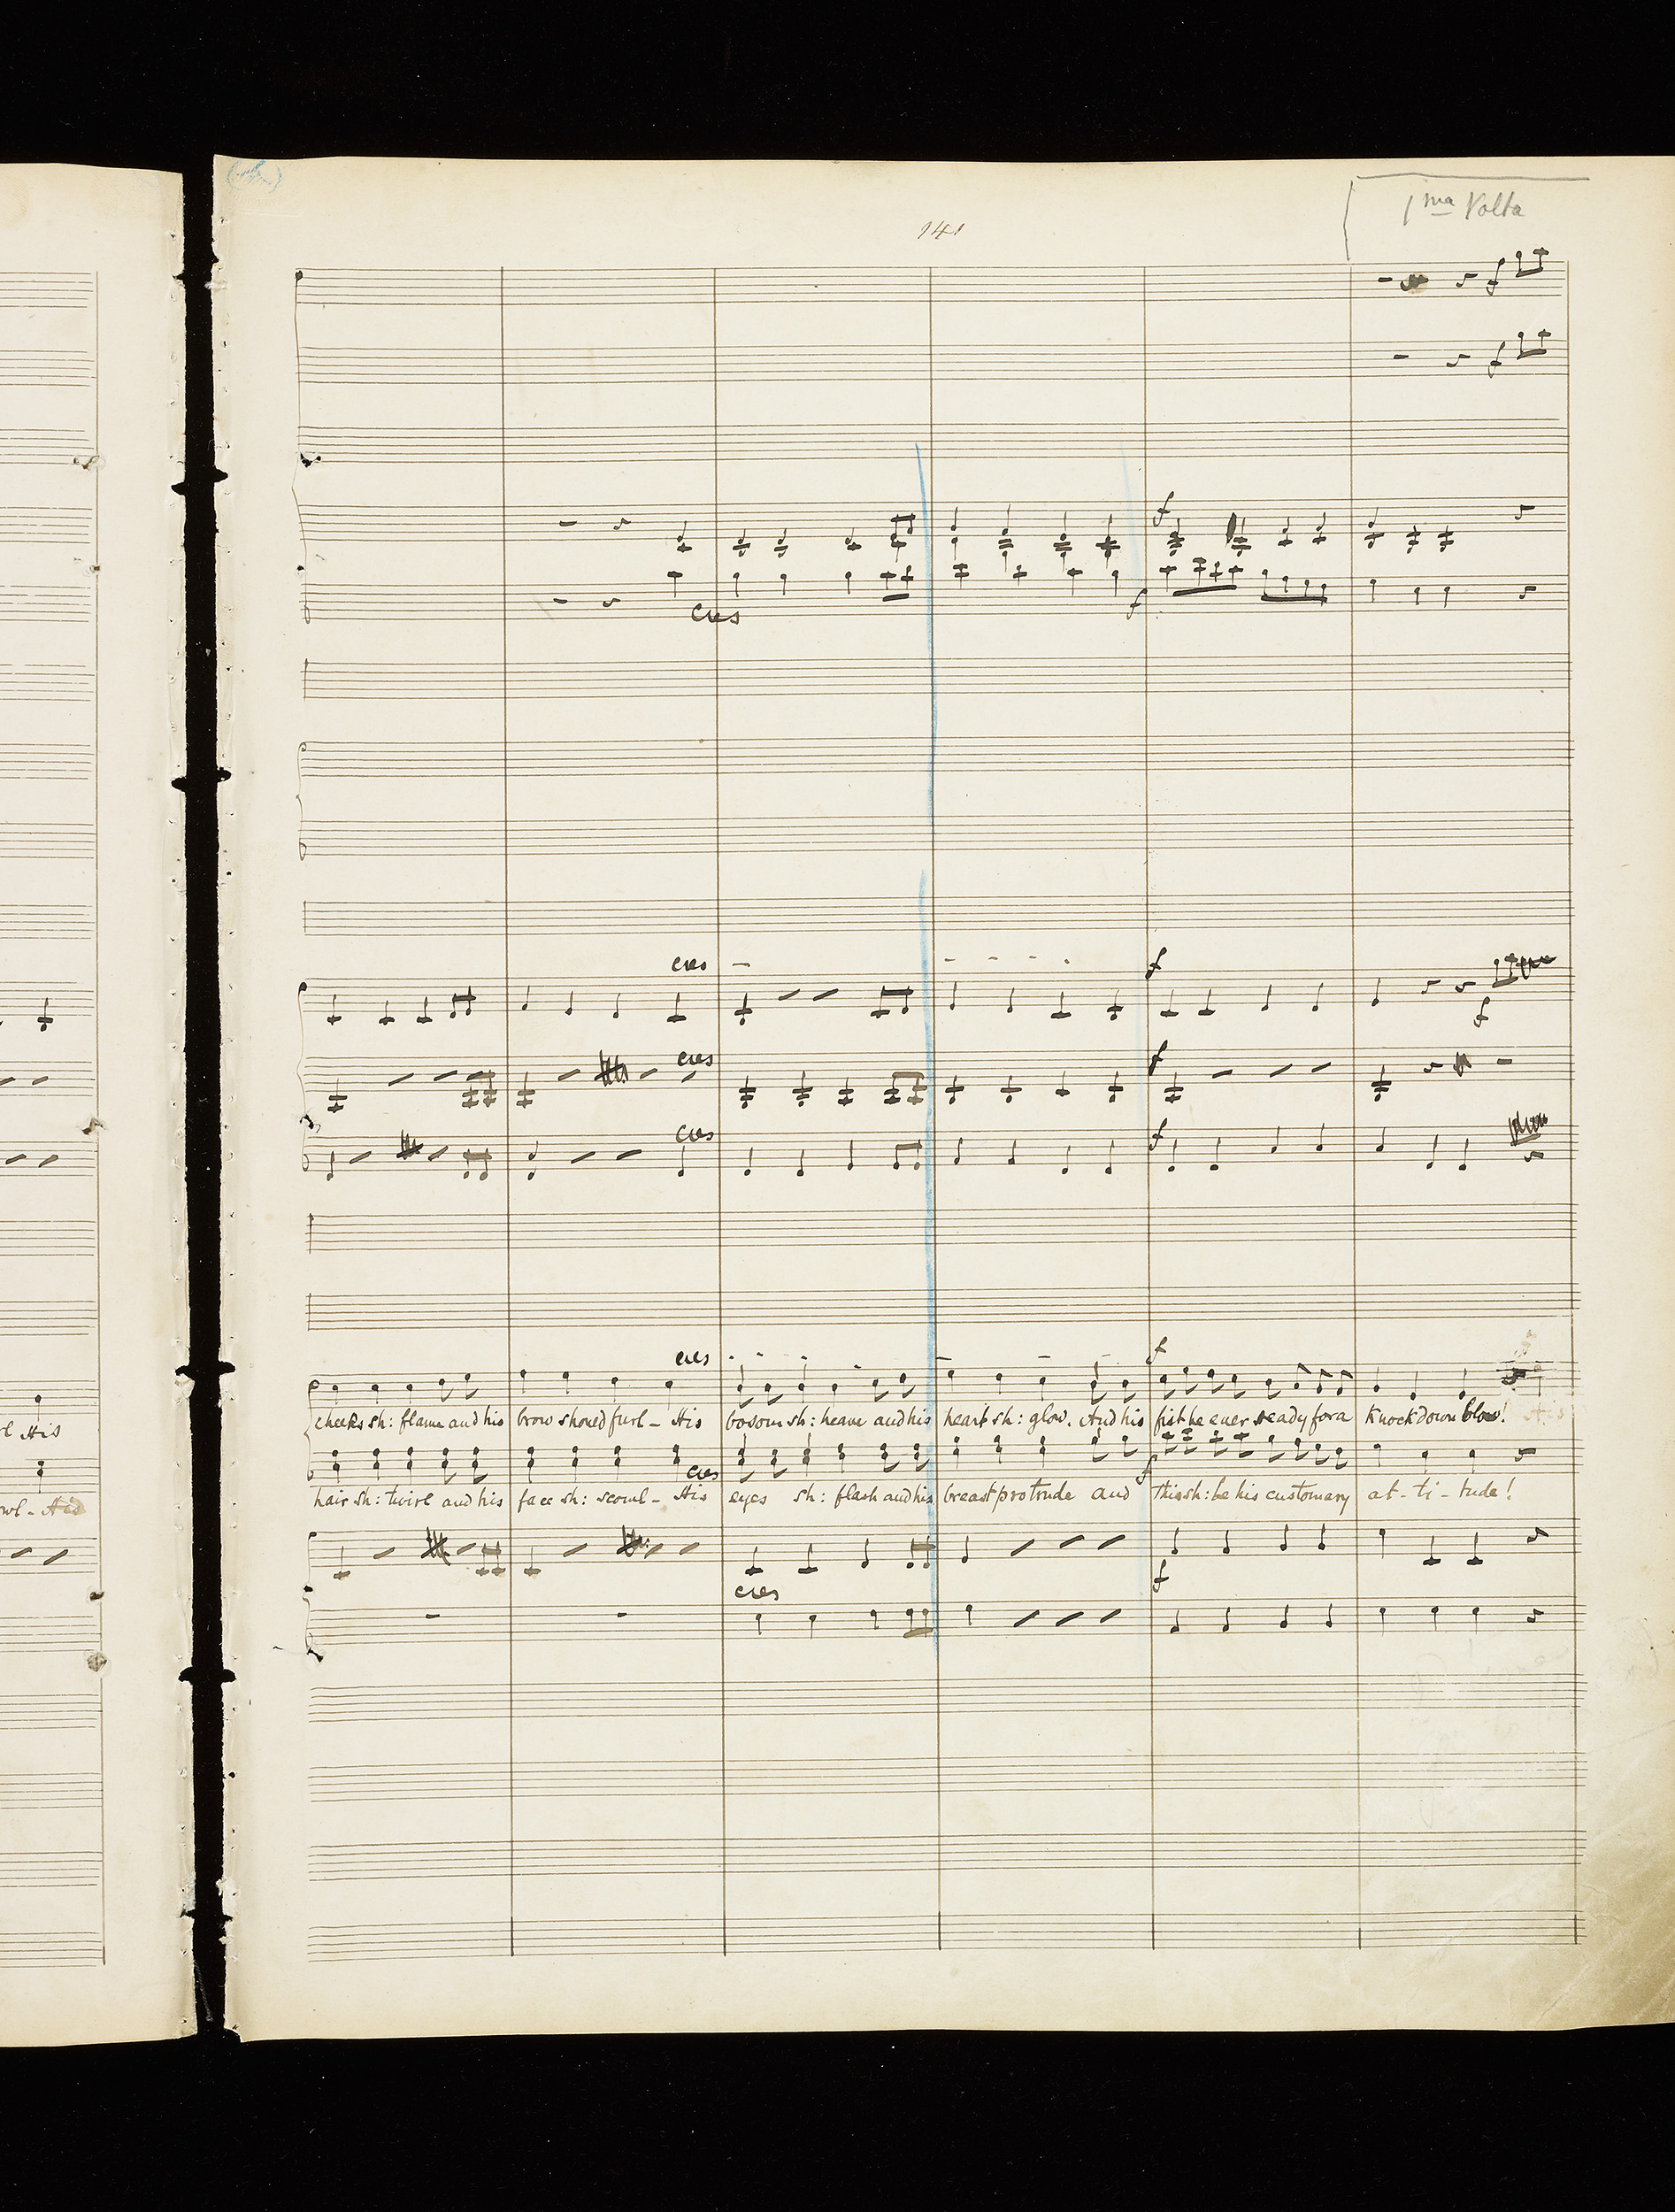 1ma Volta
141
f
f
f
cres
f
cres
f
f
cres
f
cres
f
cres
f
l His
cheeks sh: flame and his brow should furl - His bosom sh: heave and his heart sh: glow. And his fist be ever ready for a knock down blow! His
cres
f
wl - His
hair sh: twirl and his face sh: scowl - His eyes sh: flash and his breast protrude and this sh: be his customary at - ti - tude!
f
cres